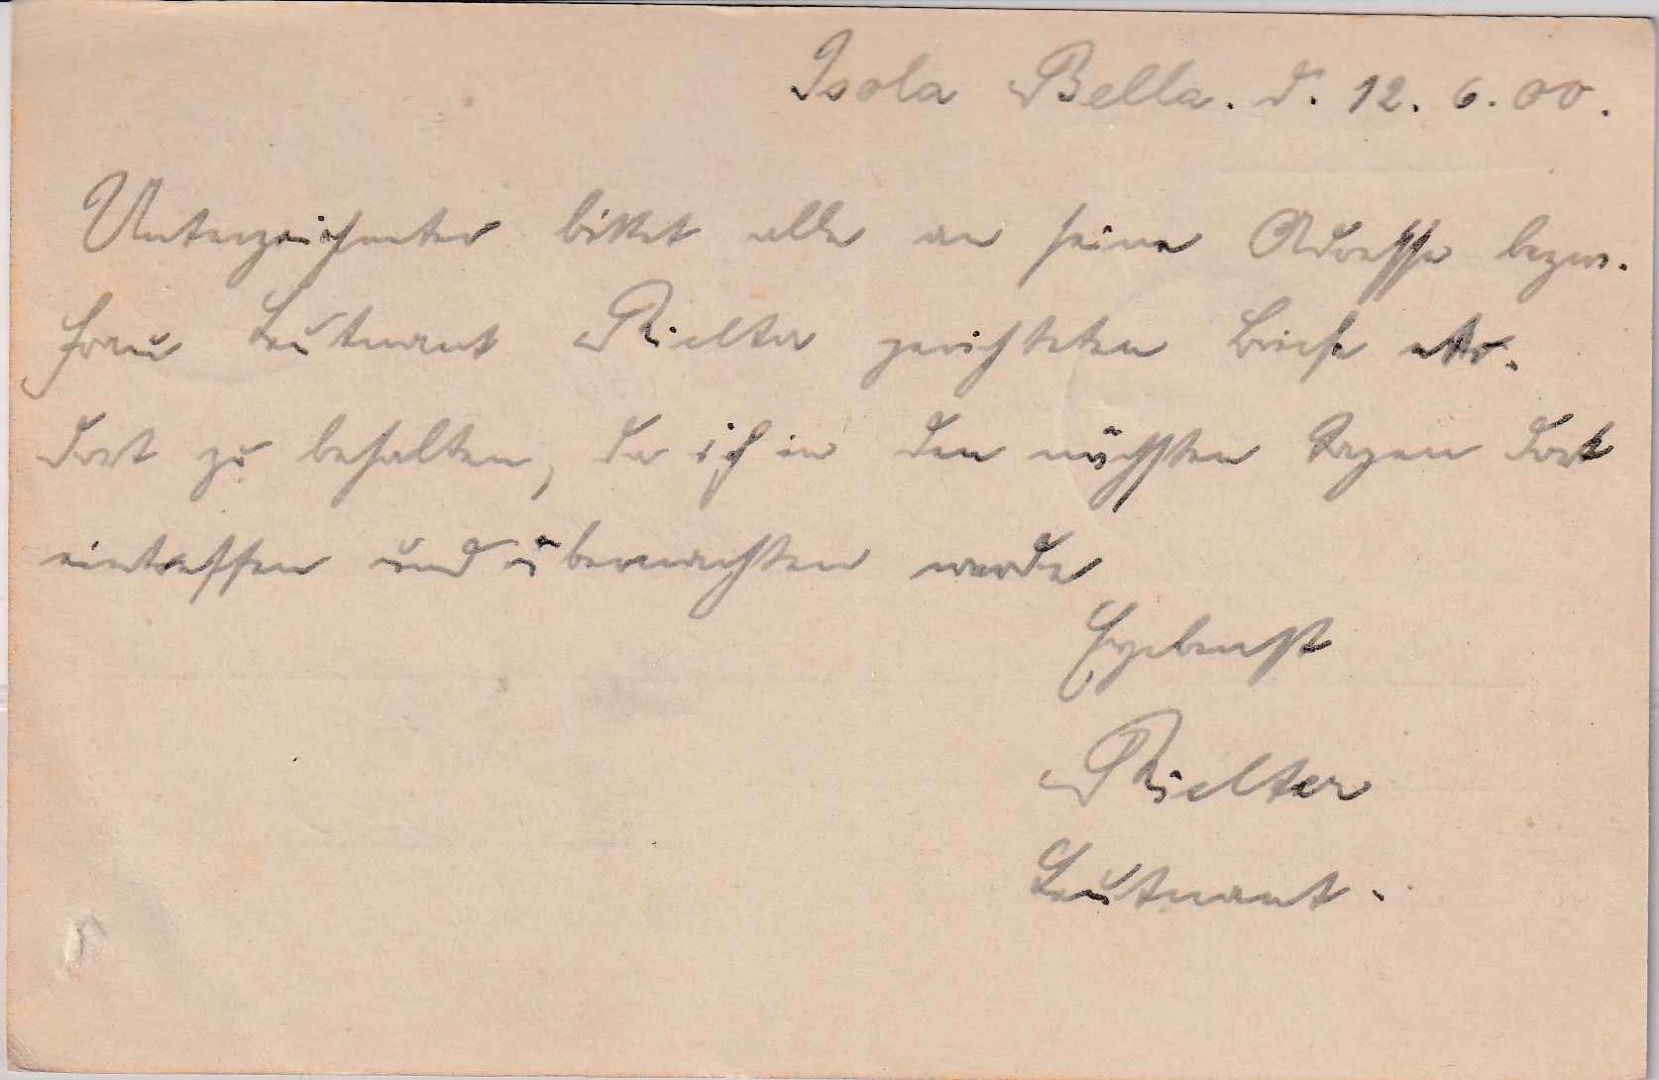 Isola Bella. d. 12. 6. 00.
Unterzeichneter bittet alle an seine Adresse bezw.
Frau Leutnant Richter gerichteten Briefe etc.
dort zu behalten, da ich in den nächsten Tagen dort
eintreffen und übernachten werde
Ergebenst
Richter
Leutnant.